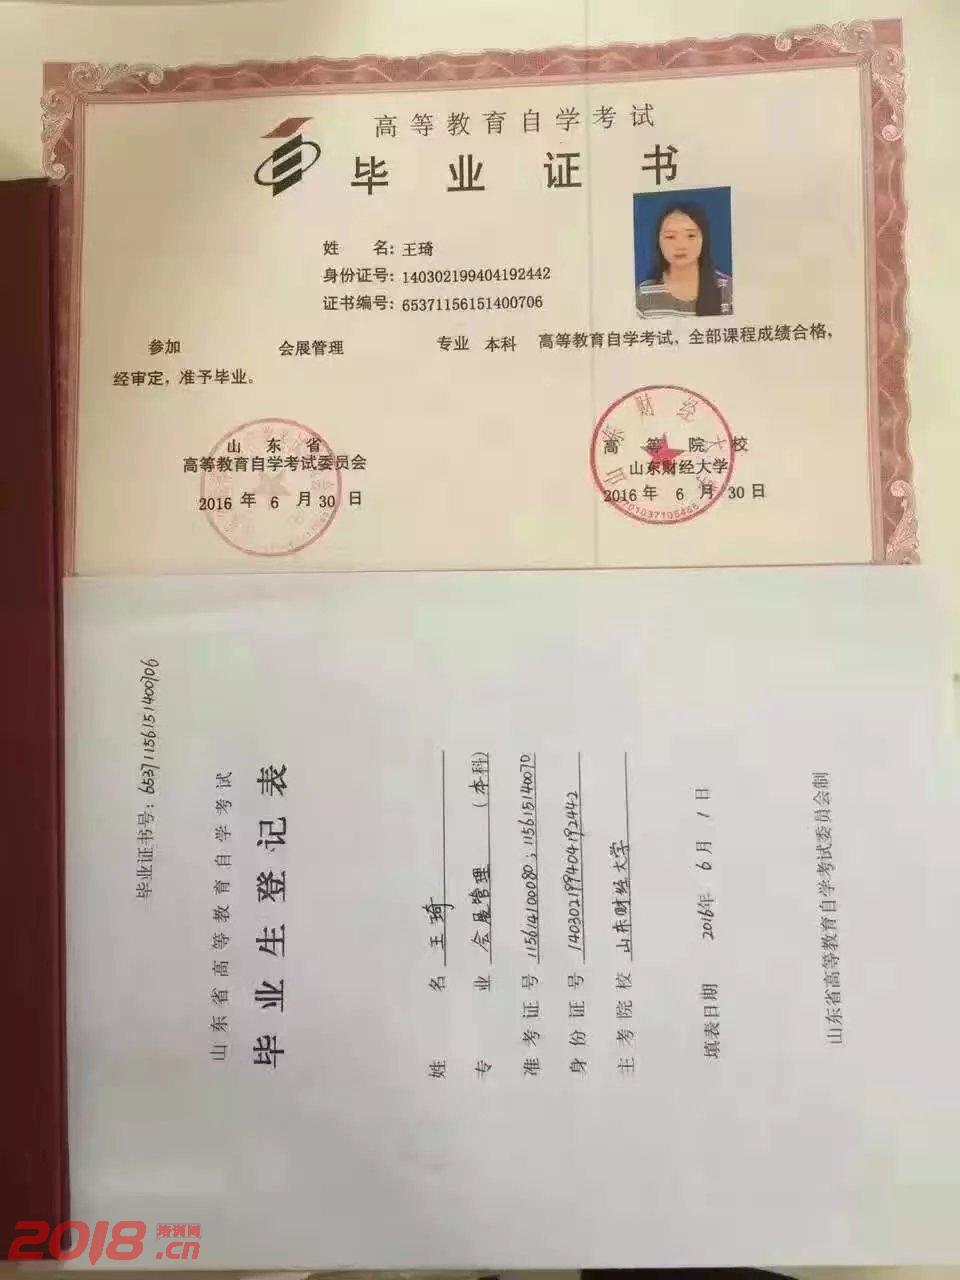 高等教育自学考试
毕业证书
姓 名: 王琦
身份证号: 140302199404192442
证书编号: 65371156151400706
参加 会展管理 专业 本科 高等教育自学考试，全部课程成绩合格，
经审定，准予毕业。
山东省
高等教育自学考试委员会
2016 年 6 月 30 日
高等院校
山东财经大学
2016 年 6 月 30 日
山东财经大学
3701037105466
毕业证书号: 65371156151400706
山东省高等教育自学考试
毕业生登记表
姓 名 王琦
专 业 会展管理 （本科）
准考证号 115614100080; 115615140070
身份证号 140302199404192442
主考院校 山东财经大学
填表日期 2016年 6月 1日
山东省高等教育自学考试委员会制
2018培训网
.cn